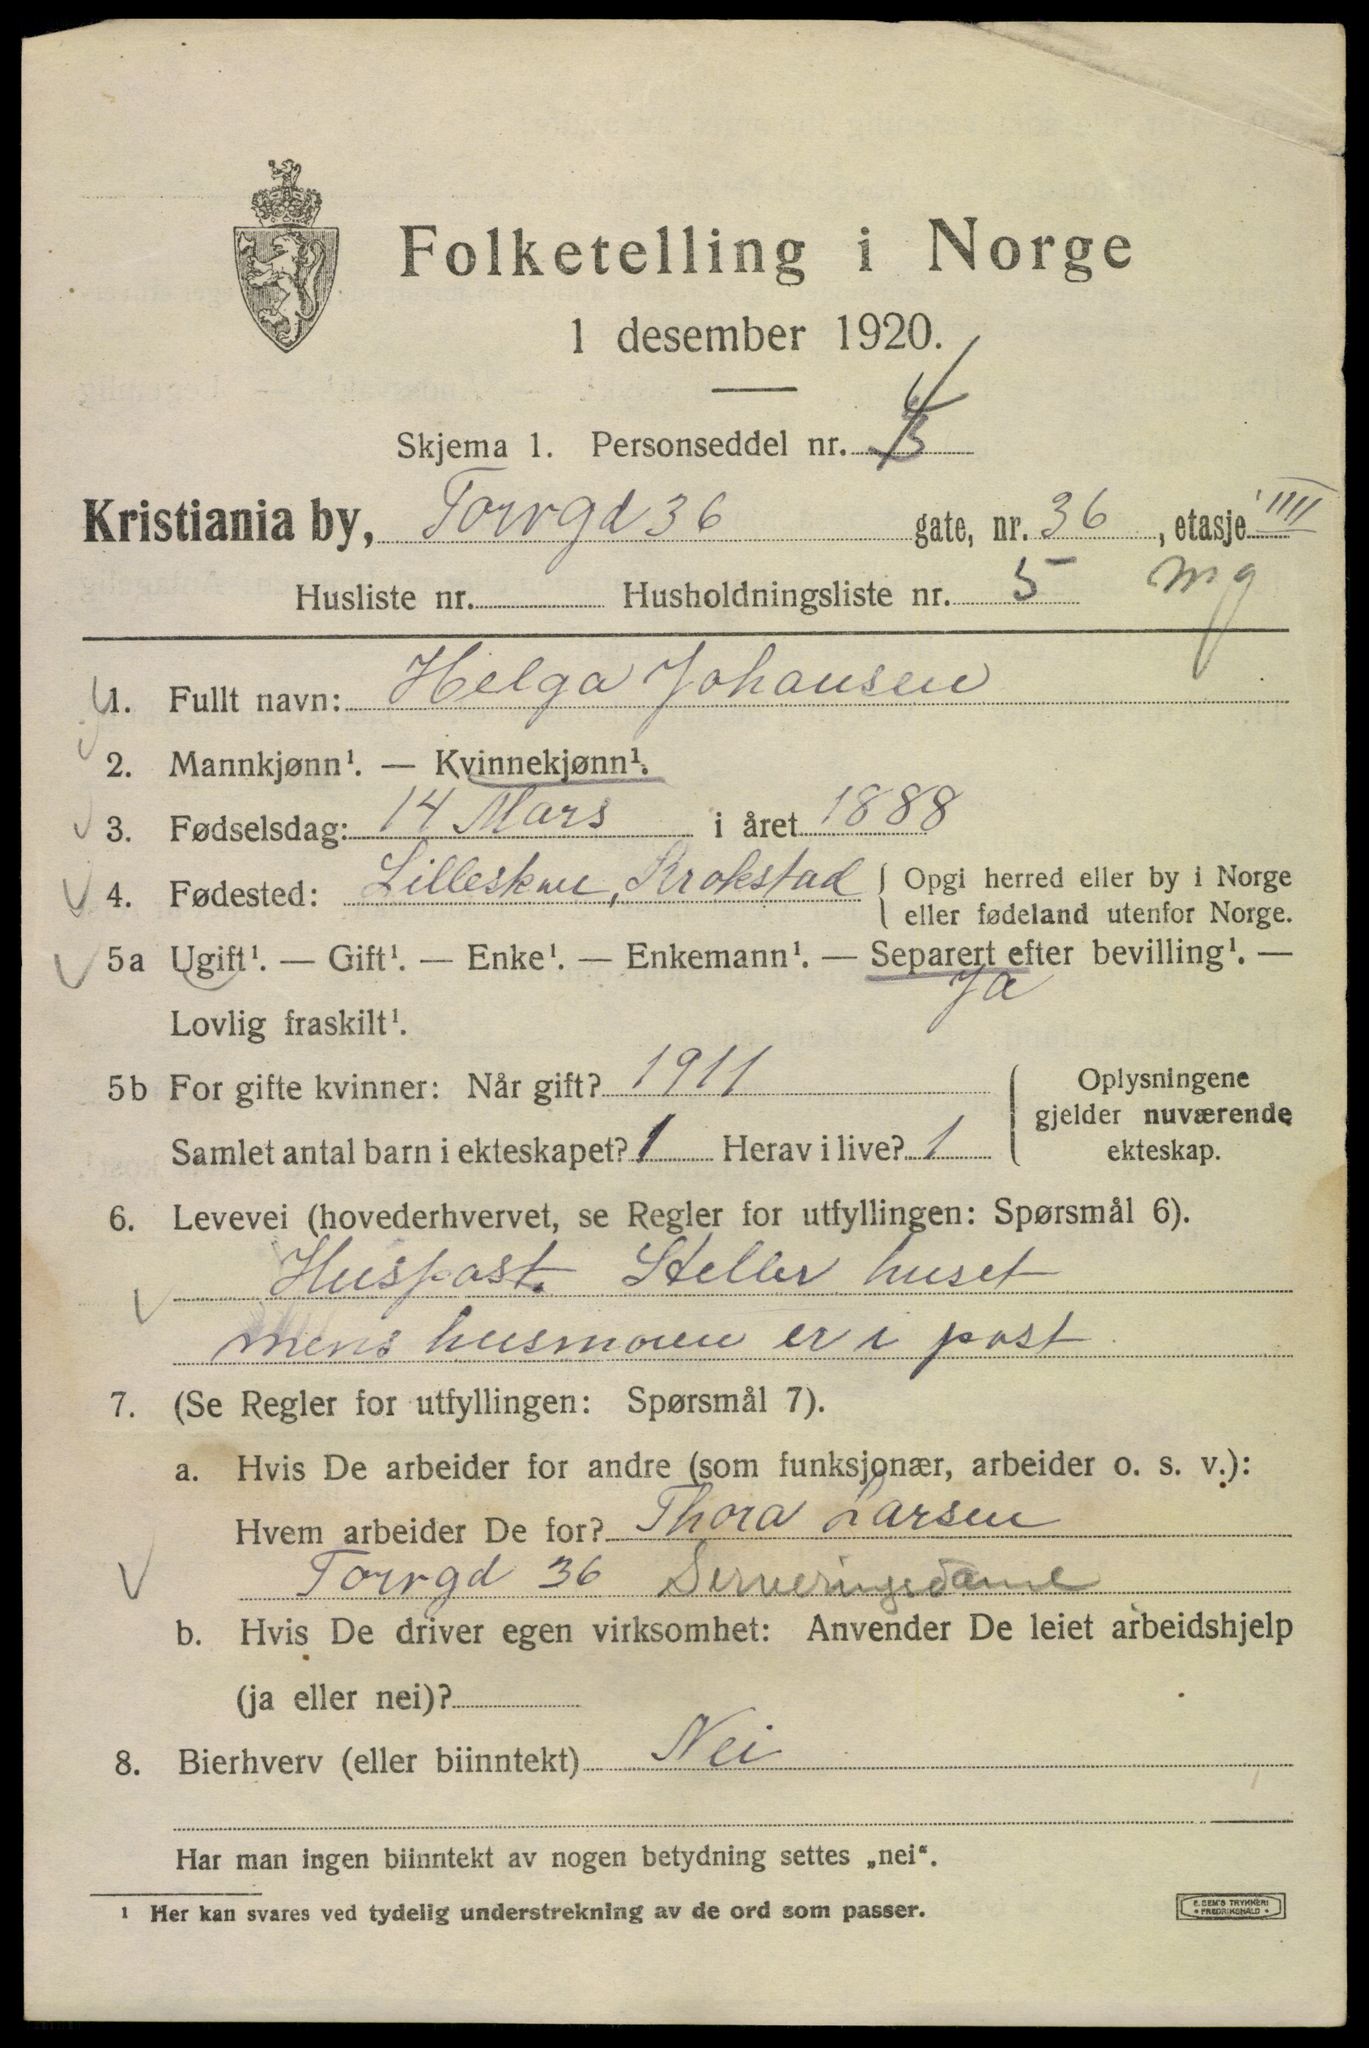 Folketelling i Norge
1 desember 1920.
Skjema 1. Personseddel nr. 4
Kristiania by, Torvgd 36 gate, nr. 36, etasje IIII
Husliste nr. Husholdningsliste nr. 5 mg
1. Fullt navn: Helga Johansen
2. Mannkjønn¹. — Kvinnekjønn¹.
3. Fødselsdag: 14 Mars i året 1888
4. Fødested: Krokstad { Opgi herred eller by i Norge
eller fødeland utenfor Norge.
5a Ugift¹. — Gift¹. — Enke¹. — Enkemann¹. — Separert efter bevilling¹. —
Ja
Lovlig fraskilt¹.
5b For gifte kvinner: Når gift? 1911
Samlet antal barn i ekteskapet? 1 Herav i live? 1
Oplysningene
gjelder nuværende
ekteskap.
6. Levevei (hovederhvervet, se Regler for utfyllingen: Spørsmål 6).
Huspost. Steller huset
mens husmoren er i post
7. (Se Regler for utfyllingen: Spørsmål 7).
a. Hvis De arbeider for andre (som funksjonær, arbeider o. s. v.):
Hvem arbeider De for? Thora Larsen
Torvgd 36 Serveringsdame
b. Hvis De driver egen virksomhet: Anvender De leiet arbeidshjelp
(ja eller nei)?
8. Bierhverv (eller biinntekt) Nei
Har man ingen biinntekt av nogen betydning settes „nei“.
¹ Her kan svares ved tydelig understrekning av de ord som passer.
E. SEM'S TRYKKERI
• FREDRIKSHALD •